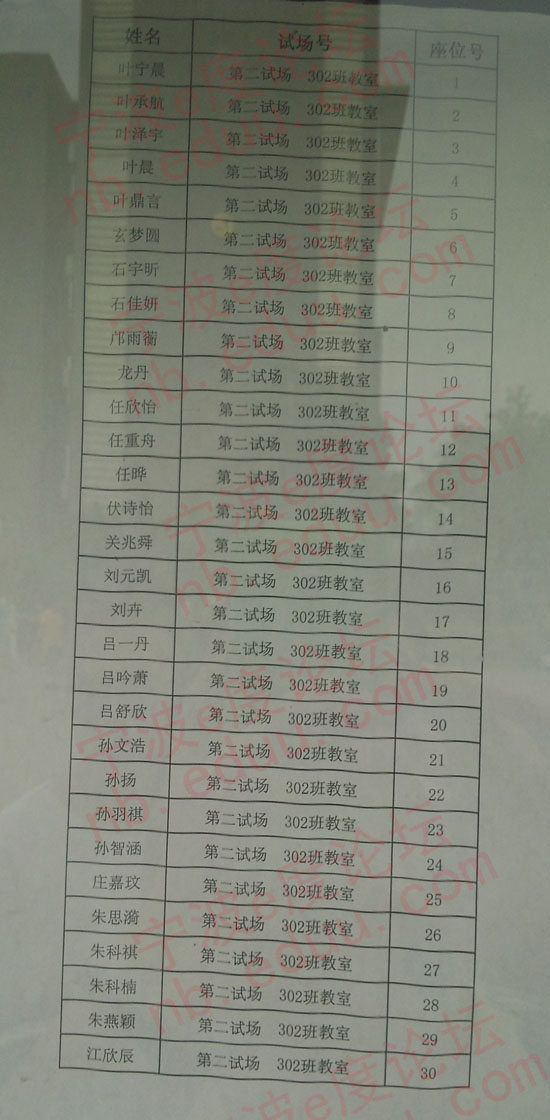 姓名 试场号 座位号
叶宁晨 第二试场 302班教室 1
叶承航 第二试场 302班教室 2
叶泽宇 第二试场 302班教室 3
叶晨 第二试场 302班教室 4
叶鼎言 第二试场 302班教室 5
玄梦圆 第二试场 302班教室 6
石宇昕 第二试场 302班教室 7
石佳妍 第二试场 302班教室 8
邝雨蘅 第二试场 302班教室 9
龙丹 第二试场 302班教室 10
任欣怡 第二试场 302班教室 11
任重舟 第二试场 302班教室 12
任晔 第二试场 302班教室 13
伏诗怡 第二试场 302班教室 14
关兆舜 第二试场 302班教室 15
刘元凯 第二试场 302班教室 16
刘卉 第二试场 302班教室 17
吕一丹 第二试场 302班教室 18
吕吟萧 第二试场 302班教室 19
吕舒欣 第二试场 302班教室 20
孙文浩 第二试场 302班教室 21
孙扬 第二试场 302班教室 22
孙羽祺 第二试场 302班教室 23
孙智涵 第二试场 302班教室 24
庄嘉玟 第二试场 302班教室 25
朱思漪 第二试场 302班教室 26
朱科祺 第二试场 302班教室 27
朱科楠 第二试场 302班教室 28
朱燕颖 第二试场 302班教室 29
江欣辰 第二试场 302班教室 30
宁波e度论坛